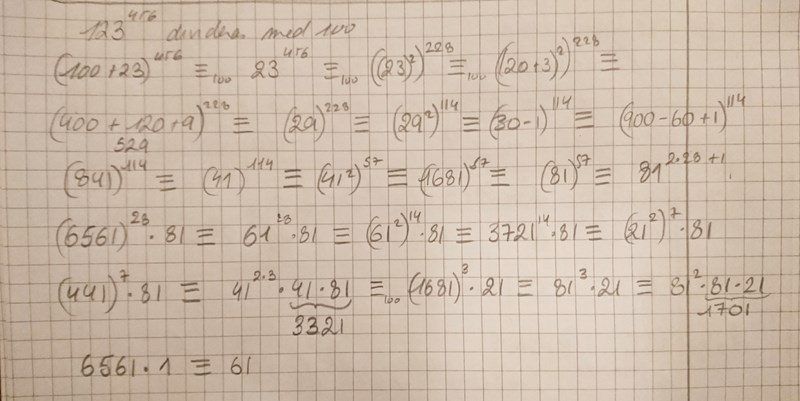 123^456 dividera med 100
(100+23)^456 ≡₁₀₀ 23^456 ≡₁₀₀ ((23)²)^228 ≡₁₀₀ ((20+3)²)^228 ≡
(400+120+9)^228 ≡ (29)^228 ≡ (29²)^114 ≡ (30-1)^114 ≡ (900-60+1)^114
529
(841)^114 ≡ (41)^114 ≡ (41²)^57 ≡ (1681)^57 ≡ (81)^57 ≡ 81^2·28+1
(6561)^28 · 81 ≡ 61^28 · 81 ≡ (61²)^14 · 81 ≡ 3721^14 · 81 ≡ (21²)^7 · 81
(441)^7 · 81 ≡ 41^2·3 · 41 · 81 ≡₁₀₀ (1681)^3 · 21 ≡ 81^3 · 21 ≡ 81² · 81 · 21
3321 1701
6561 · 1 ≡ 61